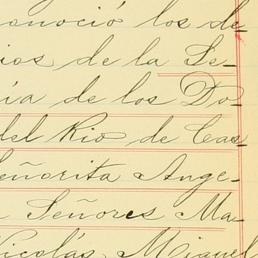 onoció los de-
ios de la Se-
ía de los Do-
del Rio de Cas-
eñorita Ange-
Señores Ma-
Nicolás, Miguel